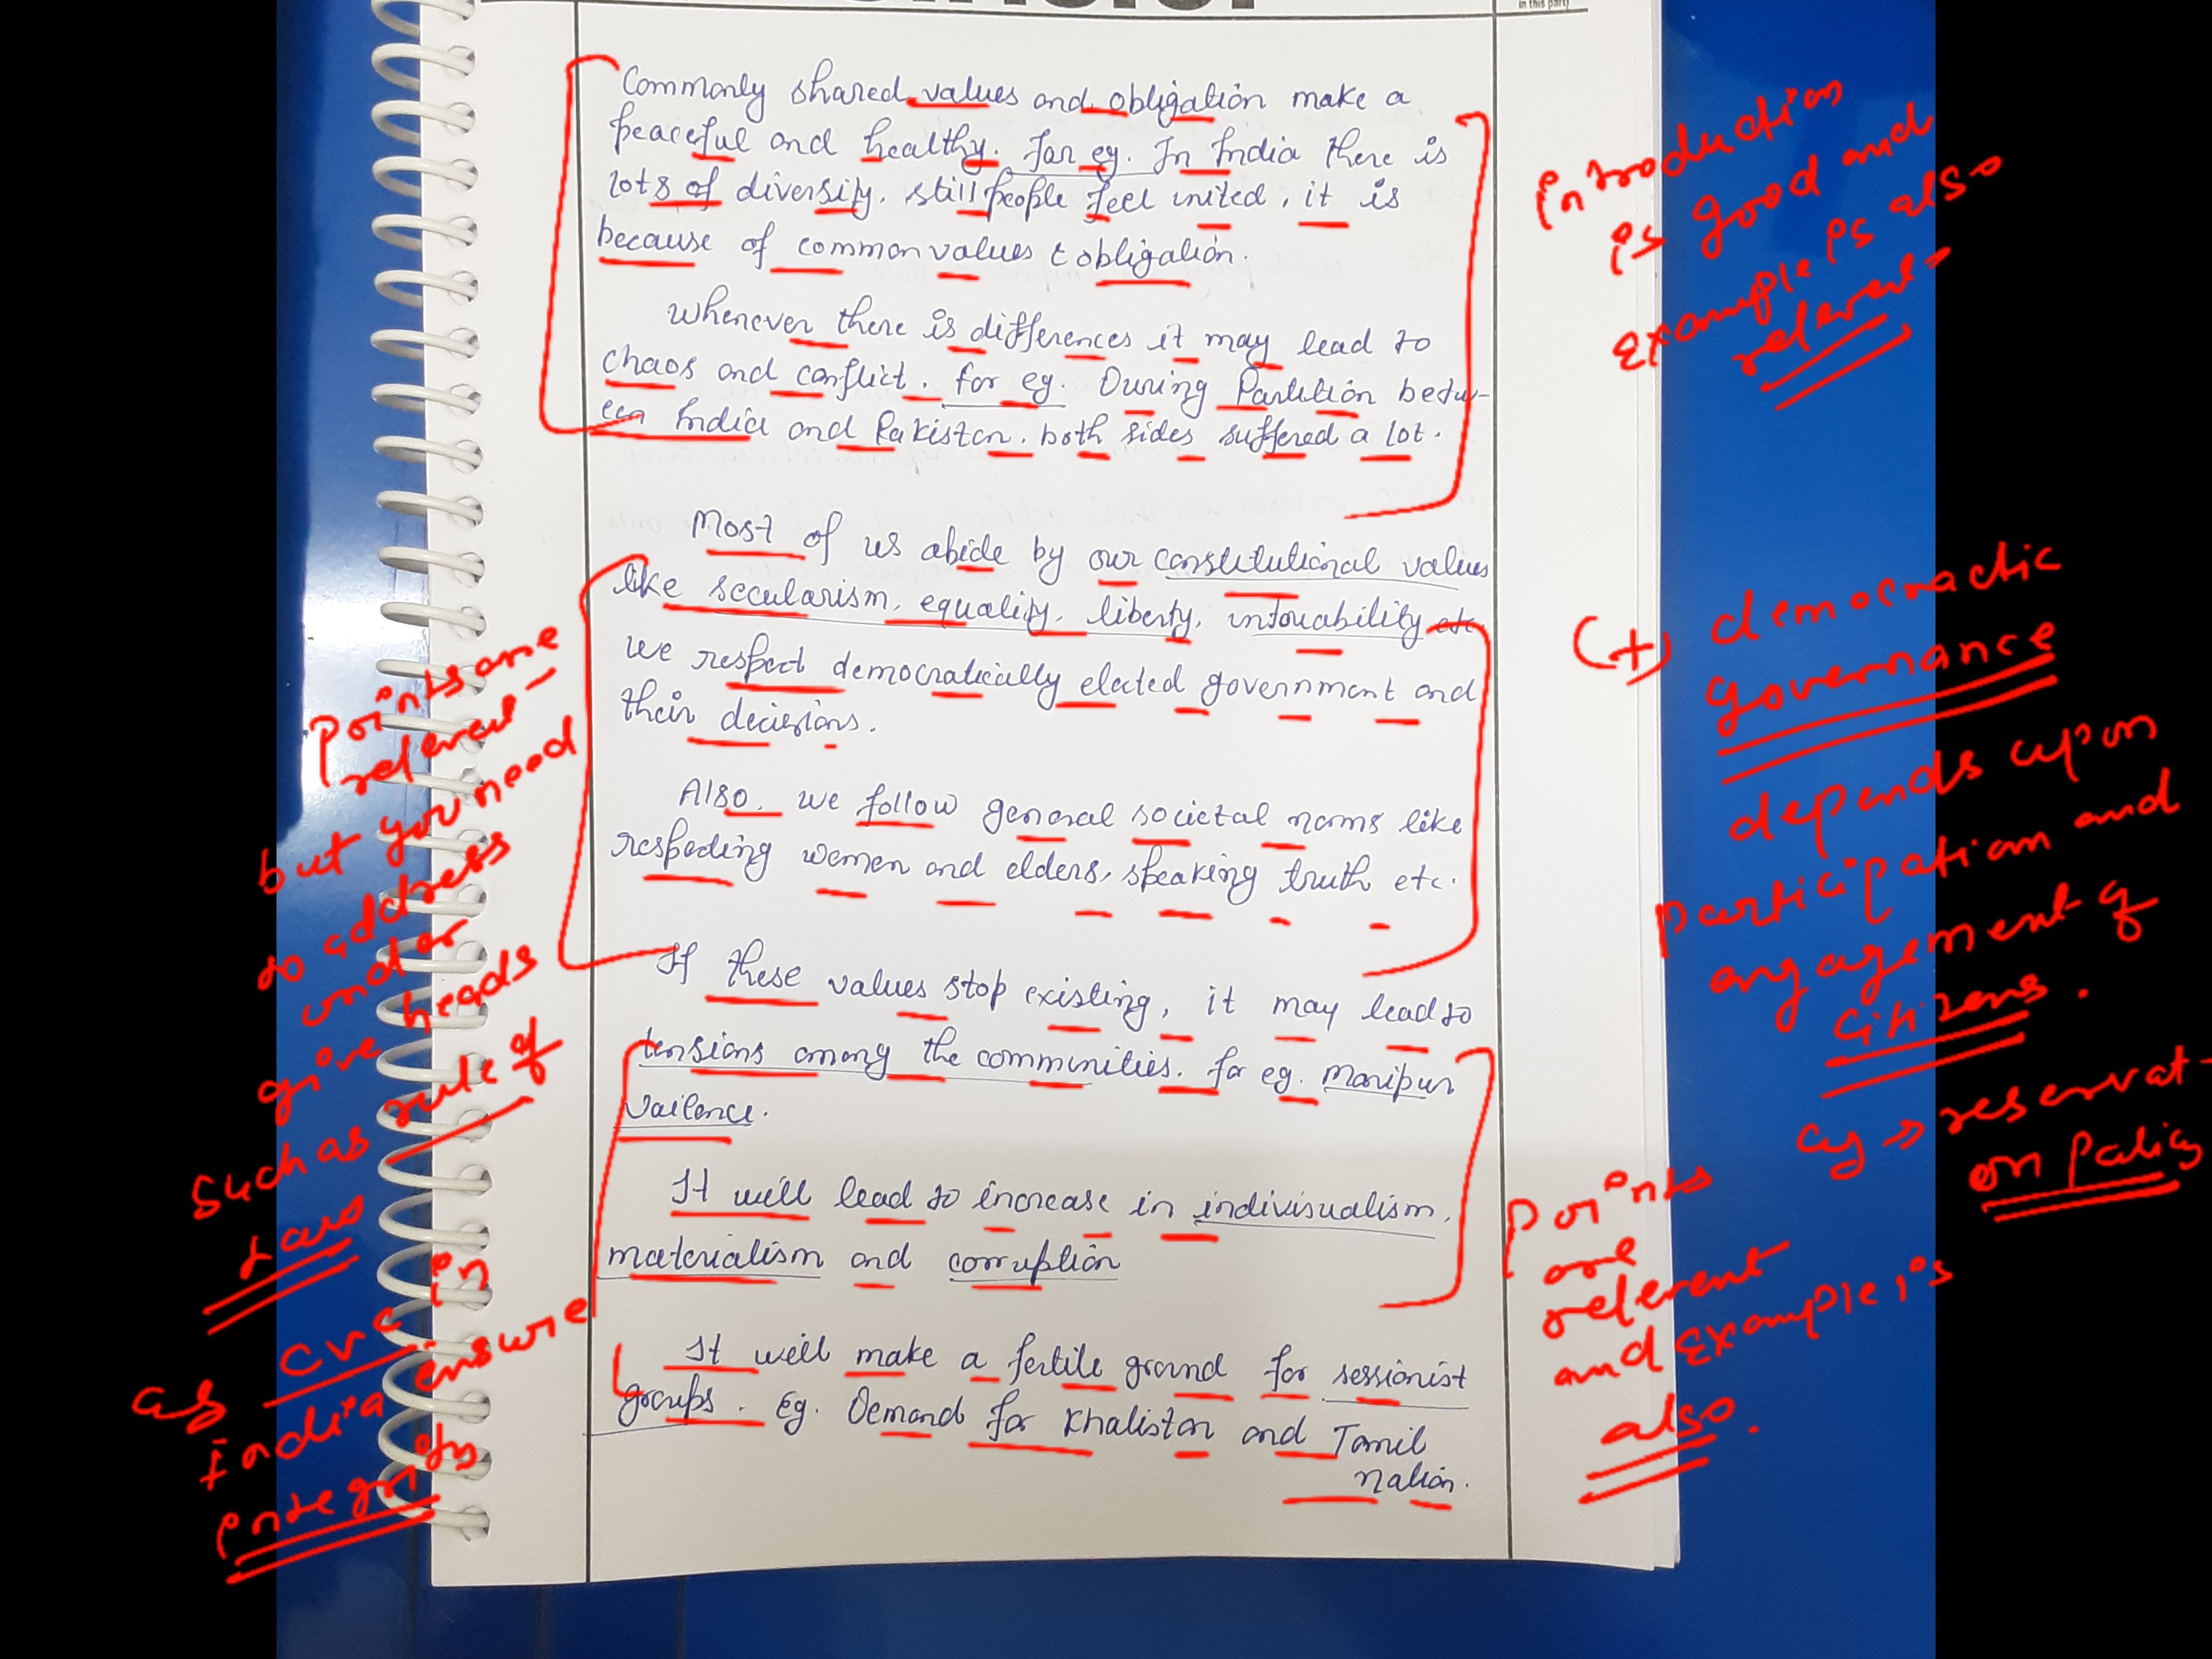 in this part
Commonly shared values and obligation make a
peaceful and healthy. For eg. In India there is
lots of diversity. still people feel united, it is
because of common values & obligation.
Whenever there is differences it may lead to
chaos and conflict. for eg. During Partition betw-
een India and Pakistan. both sides suffered a lot.
Most of us abide by our constitutional values
like secularism, equality, liberty, intouability etc.
we respect democratically elected government and
their decisions.
Also, we follow general societal norms like
respecting women and elders, speaking truth etc.
If these values stop existing, it may lead to
tensions among the communities. for eg. Manipur
vailence.
It will lead to increase in indivisualism,
materialism and corruption
It will make a fertile ground for sessionist
groups. Eg. Demand for Khalistan and Tamil
nation.
introduction
is good and
example is also
relevent
(+) democractic
governance
depends upon
participation and
engagement of
citizens.
eg → reservat-
on policy
Points are
relevent
but you need
to address
under
give heads
such as rule of
laws
eg CVC in
India ensure
integrity
Points
are
relevent
and example is
also.